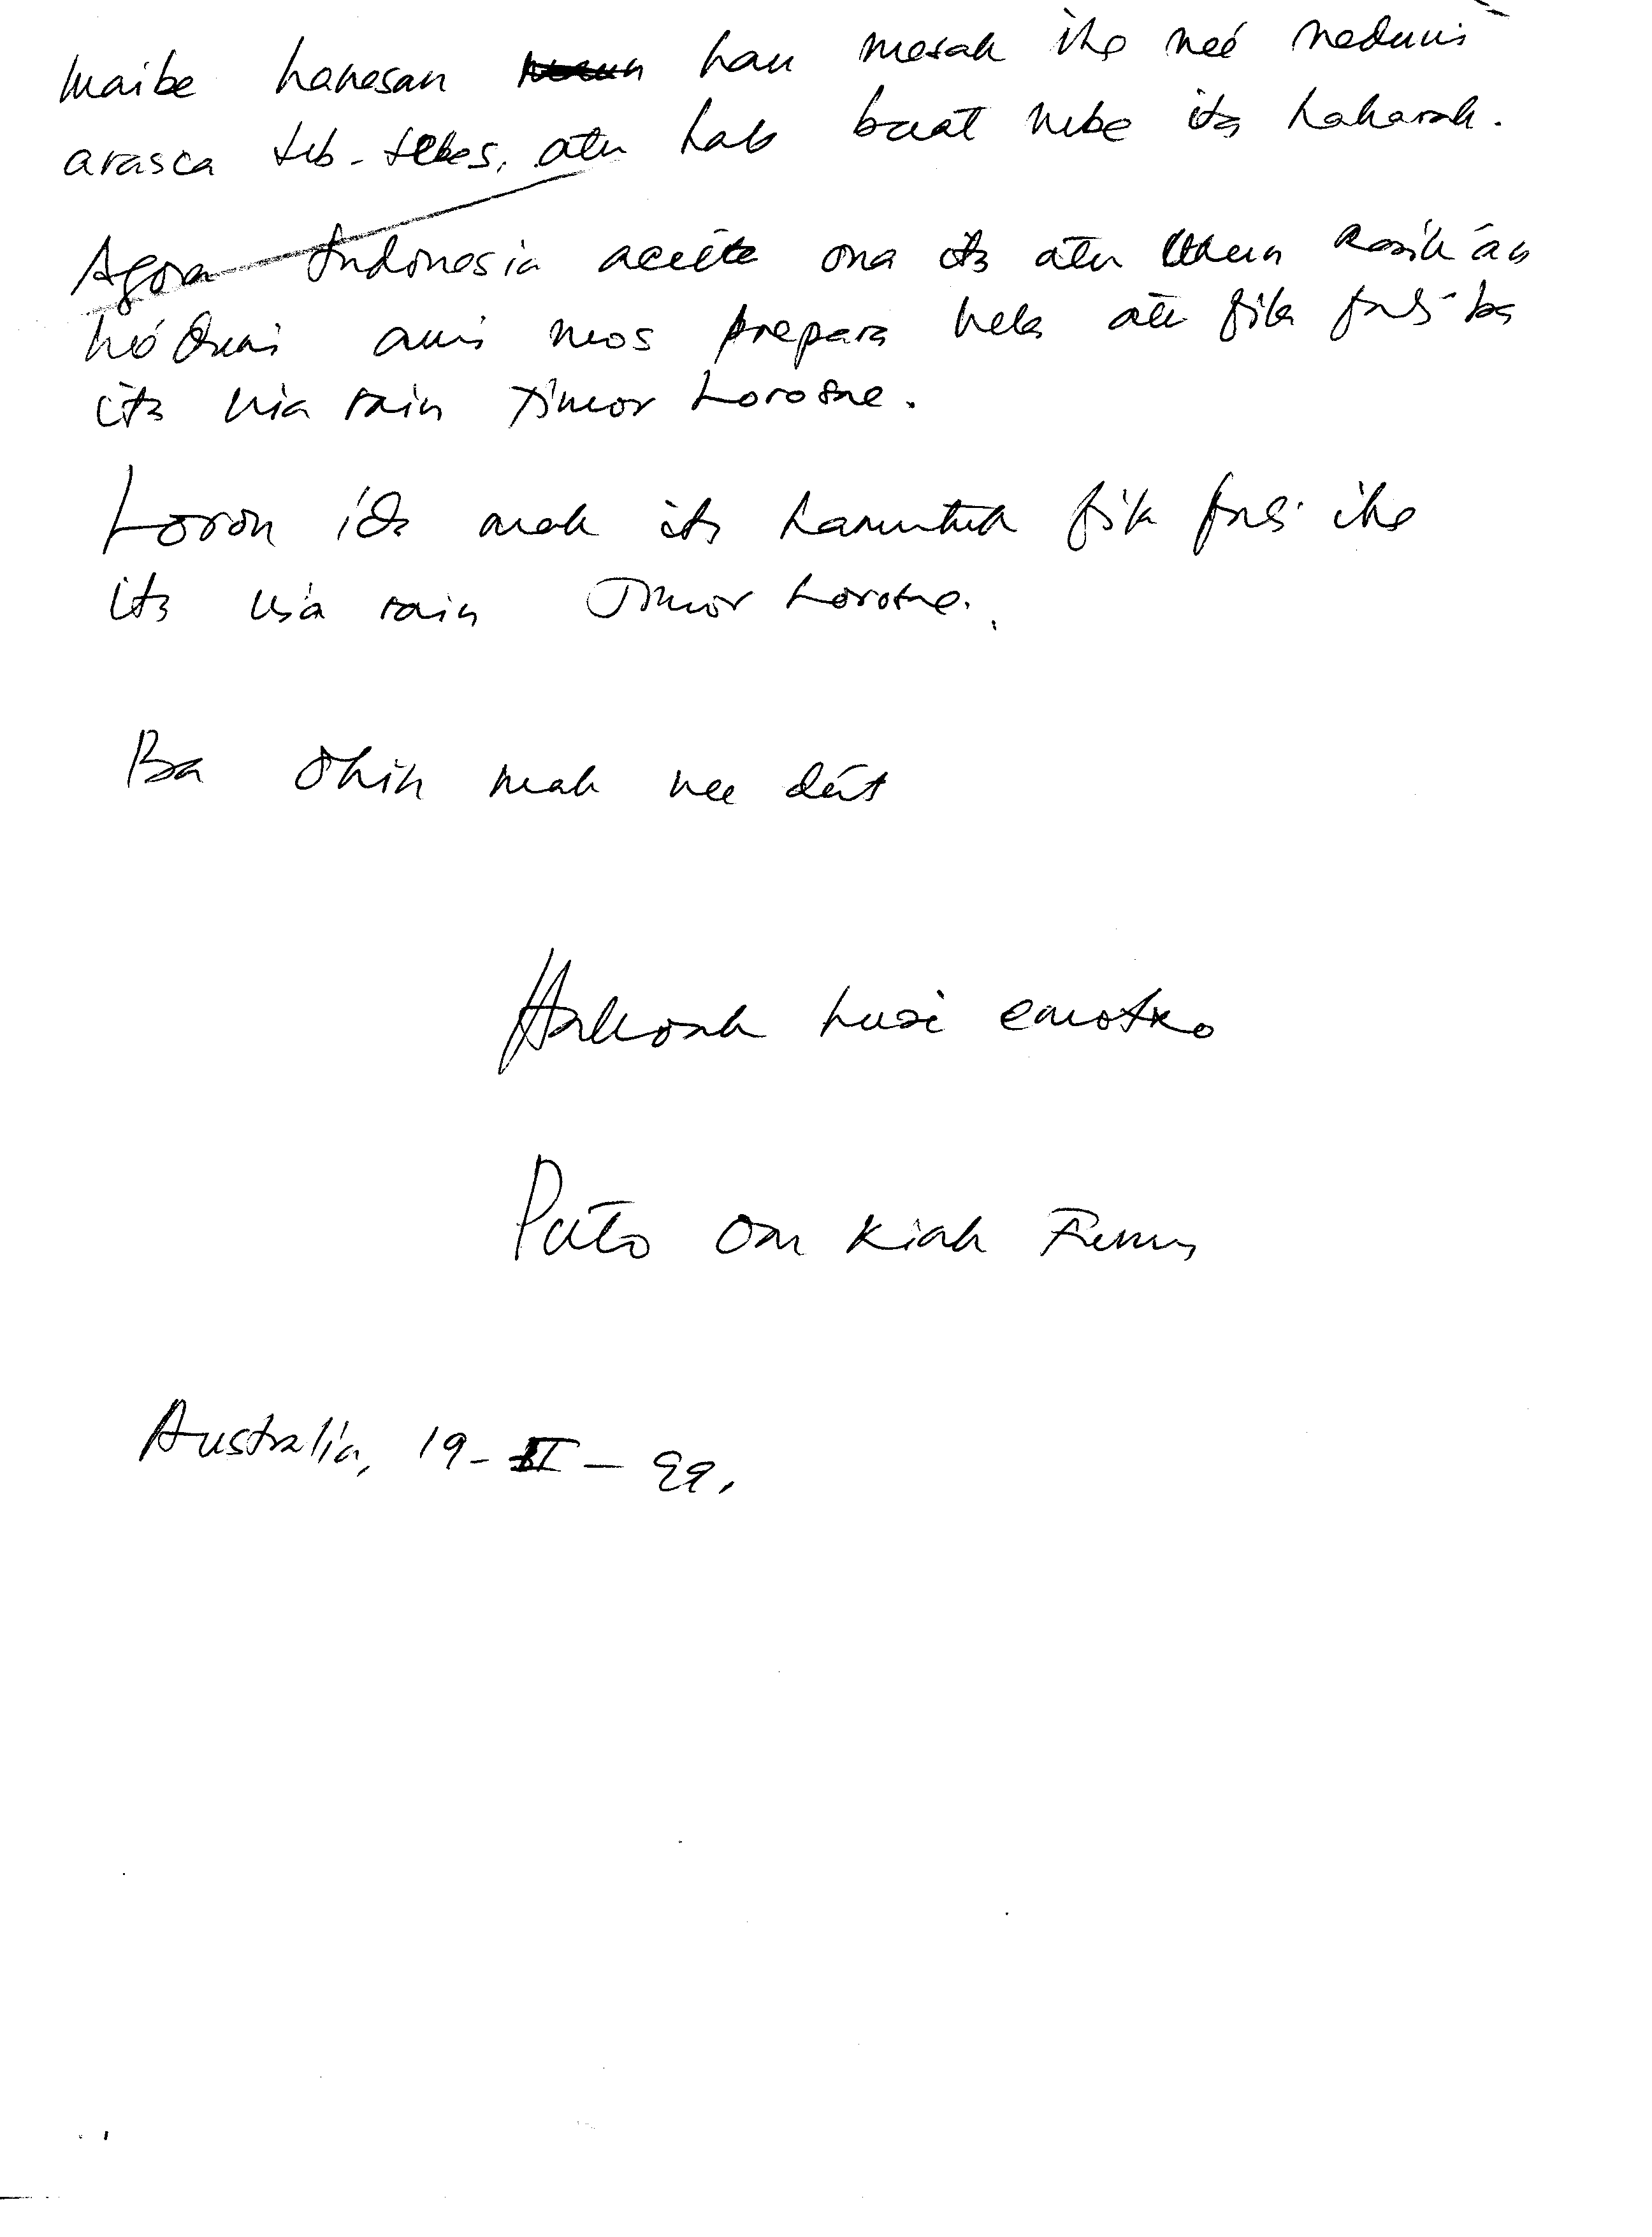 maibe hanesan hau mesak iha neé neduni
arasca teb-tebes, atu halo buat nebe ita hakarak.
Agora Indonesia aceite ona ita atu ukun rasik án
hó duni ami mos prepara hela atu fila fali ba
ita nia rain Timor Lorosae.
Loron ida mak ita hamutuk fila fali iha
ita nia rain Timor Lorosae.
Ba ohin mak nee deit
Hakoak husi
Oan Kiak
Australia, 19- -99.